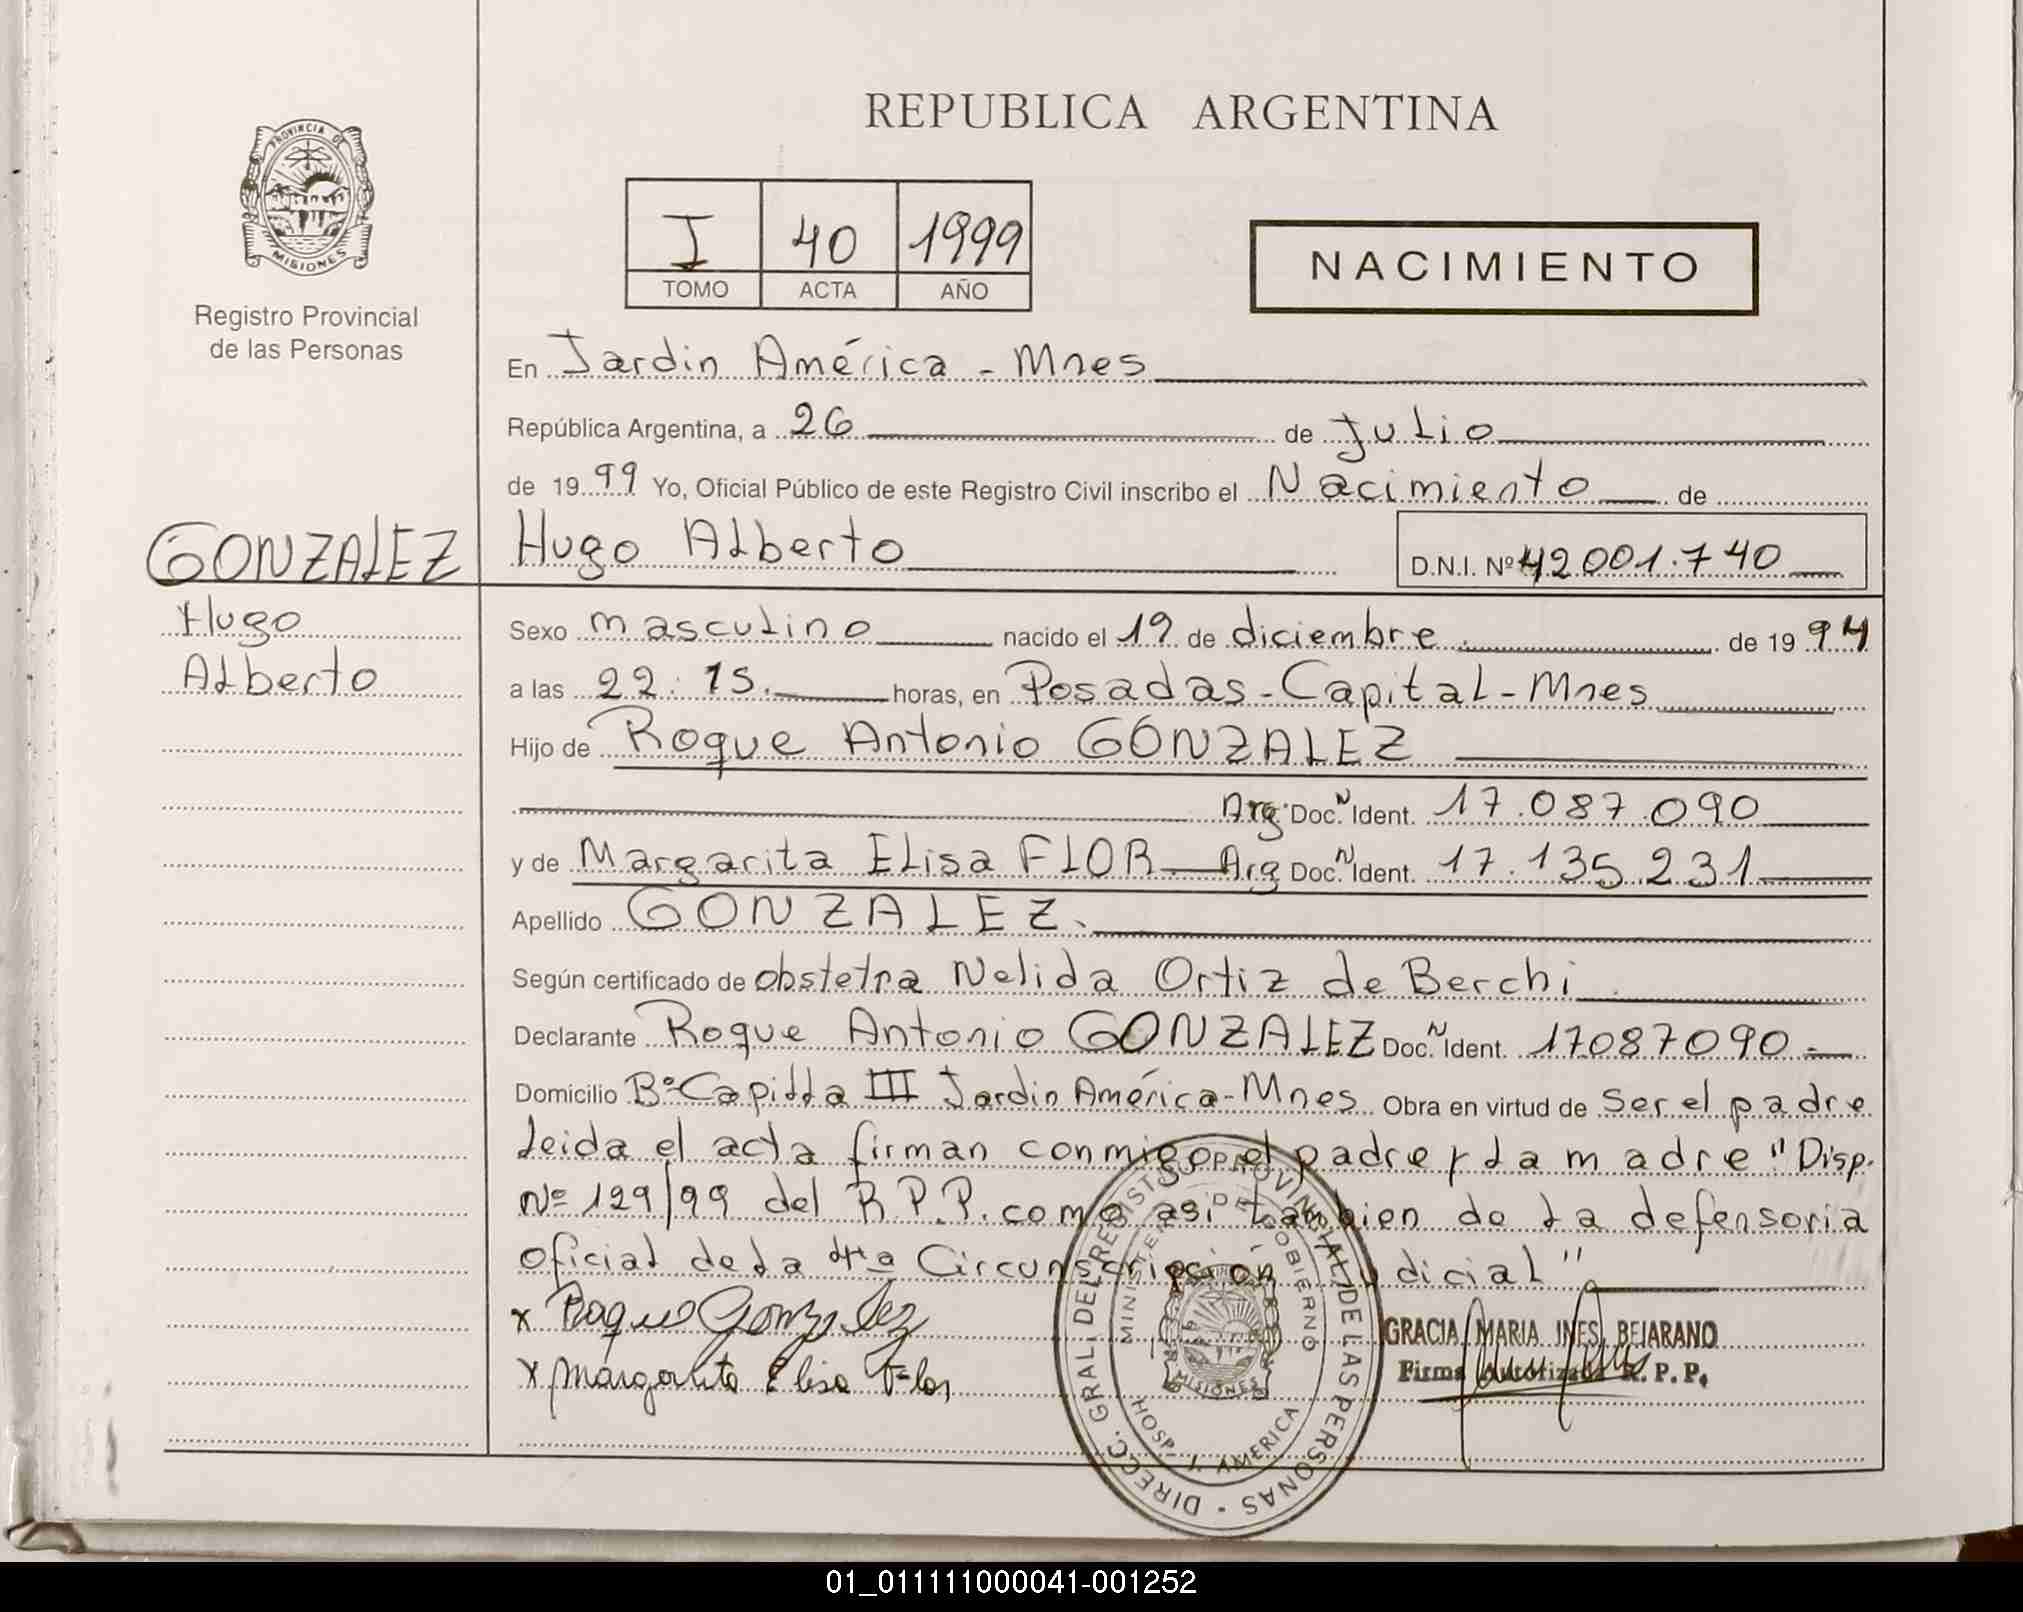 REPUBLICA ARGENTINA
PROVINCIA DE
MISIONES
Registro Provincial
de las Personas
I 40 1999
TOMO ACTA AÑO
NACIMIENTO
En Jardin América - Mnes
República Argentina, a 26 de Julio
de 1999 Yo, Oficial Público de este Registro Civil inscribo el Nacimiento de
GONZALEZ
Hugo Alberto D.N.I. Nº 42001.740
Hugo
Alberto
Sexo masculino nacido el 19 de diciembre de 1994
a las 22:15. horas, en Posadas - Capital - Mnes
Hijo de Roque Antonio GONZALEZ
Arg. Doc. N Ident. 17.087.090
y de Margarita Elisa FLOR Arg Doc. N Ident. 17.135.231
Apellido GONZALEZ.
Según certificado de obstetra Nelida Ortiz de Berchi
Declarante Roque Antonio GONZALEZ Doc. N Ident. 17087090.-
Domicilio Bº Capilla III Jardin América - Mnes Obra en virtud de ser el padre
leida el acta firman conmigo el padre y la madre "Disp.
Nº 129/99 del R.P.P. como asi tambien de la defensoria
oficial de la 4ta Circunscripción Judicial"
x Roque Gonzalez
x Margarita Elisa Flor
GRACIA MARIA INES BEJARANO
Firma Autorizada R. P. P.
DIRECC. GRAL. DEL REGISTRO PROVINCIAL DE LAS PERSONAS
MINISTERIO DE GOBIERNO
MISIONES
HOSP. J. AMERICA
01_011111000041-001252